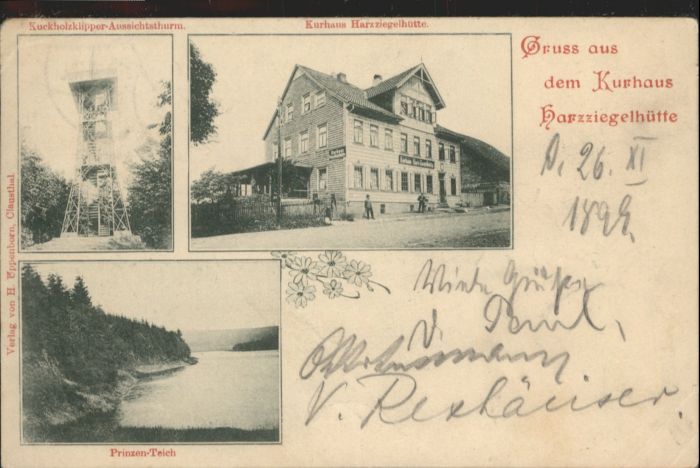 Kuckholzklipper-Aussichtsthurm.
Kurhaus Harzziegelhütte.
Gruss aus
dem Kurhaus
Harzziegelhütte
D. 26. XI
1899.
Viele Grüße
Paul,
V. Rexhäuser.
Verlag von H. Uppenborn, Clausthal.
Prinzen-Teich